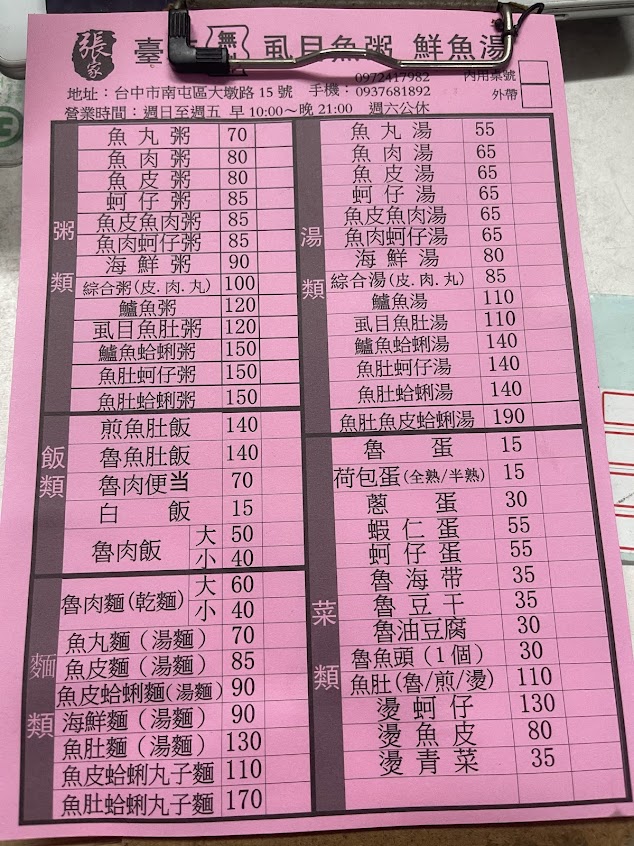 張家 臺 無 虱目魚粥 鮮魚湯
0972417982
地址：台中市南屯區大墩路 15 號 手機：0937681892
營業時間：週日至週五 早 10:00～晚 21:00 週六公休
內用桌號
外帶
粥類
魚丸粥 70
魚肉粥 80
魚皮粥 80
蚵仔粥 85
魚皮魚肉粥 85
魚肉蚵仔粥 85
海鮮粥 90
綜合粥(皮.肉.丸) 100
鱸魚粥 120
虱目魚肚粥 120
鱸魚蛤蜊粥 150
魚肚蚵仔粥 150
魚肚蛤蜊粥 150
飯類
煎魚肚飯 140
魯魚肚飯 140
魯肉便当 70
白飯 15
魯肉飯 大 50
小 40
麵類
魯肉麵(乾麵) 大 60
小 40
魚丸麵（湯麵） 70
魚皮麵（湯麵） 85
魚皮蛤蜊麵(湯麵) 90
海鮮麵（湯麵） 90
魚肚麵（湯麵） 130
魚皮蛤蜊丸子麵 110
魚肚蛤蜊丸子麵 170
湯類
魚丸湯 55
魚肉湯 65
魚皮湯 65
蚵仔湯 65
魚皮魚肉湯 65
魚肉蚵仔湯 65
海鮮湯 80
綜合湯(皮.肉.丸) 85
鱸魚湯 110
虱目魚肚湯 110
鱸魚蛤蜊湯 140
魚肚蚵仔湯 140
魚肚蛤蜊湯 140
魚肚魚皮蛤蜊湯 190
菜類
魯蛋 15
荷包蛋(全熟/半熟) 15
蔥蛋 30
蝦仁蛋 55
蚵仔蛋 55
魯海带 35
魯豆干 35
魯油豆腐 30
魯魚頭（1個） 30
魚肚(魯/煎/燙) 110
燙蚵仔 130
燙魚皮 80
燙青菜 35